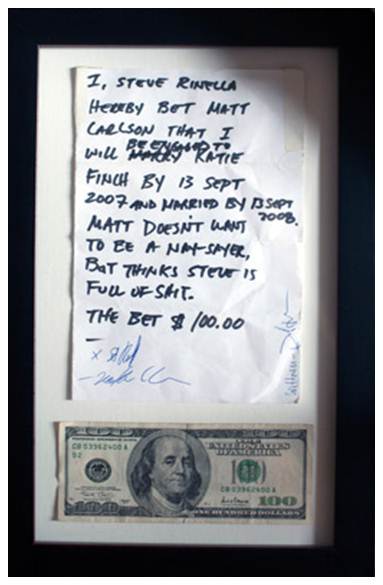 I, STEVE RINELLA
HEREBY BET MATT
CARLSON THAT I
BE ENGAGED TO
WILL MARRY KATIE
FINCH BY 13 SEPT
2007 AND MARRIED BY 13 SEPT
2008.
MATT DOESN'T WANT
TO BE A NAY-SAYER,
BUT THINKS STEVE IS
FULL OF SHIT.
THE BET $ 100.00
100
CB 03962400 A
B2
THE UNITED STATES
OF AMERICA
CB 03962400 A
100
100
ONE HUNDRED DOLLARS